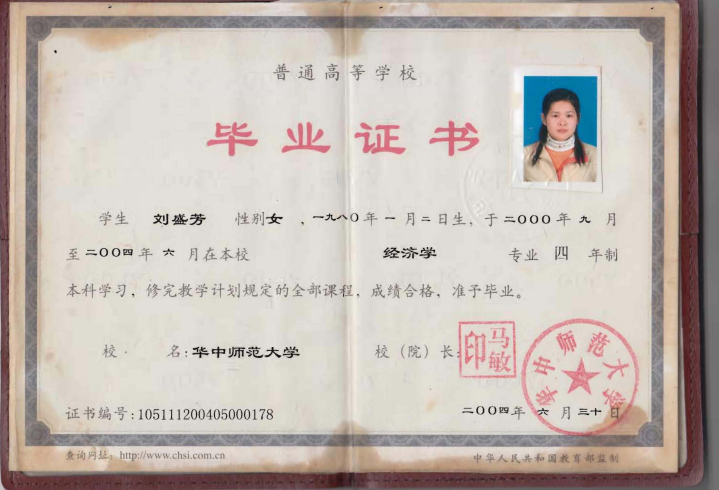 普通高等学校
毕业证书
学生 刘盛芳 性别女 ，一九八〇年 一 月 二 日生，于 二〇〇〇 年 九 月
至 二〇〇四 年 六 月在本校 经济学 专业 四 年制
本科学习，修完教学计划规定的全部课程，成绩合格，准予毕业。
校 名：华中师范大学 校（院）长：
马敏印
华中师范大学
证书编号：105111200405000178 二〇〇四年 六 月 三十 日
查询网址：http://www.chsi.com.cn 中华人民共和国教育部监制